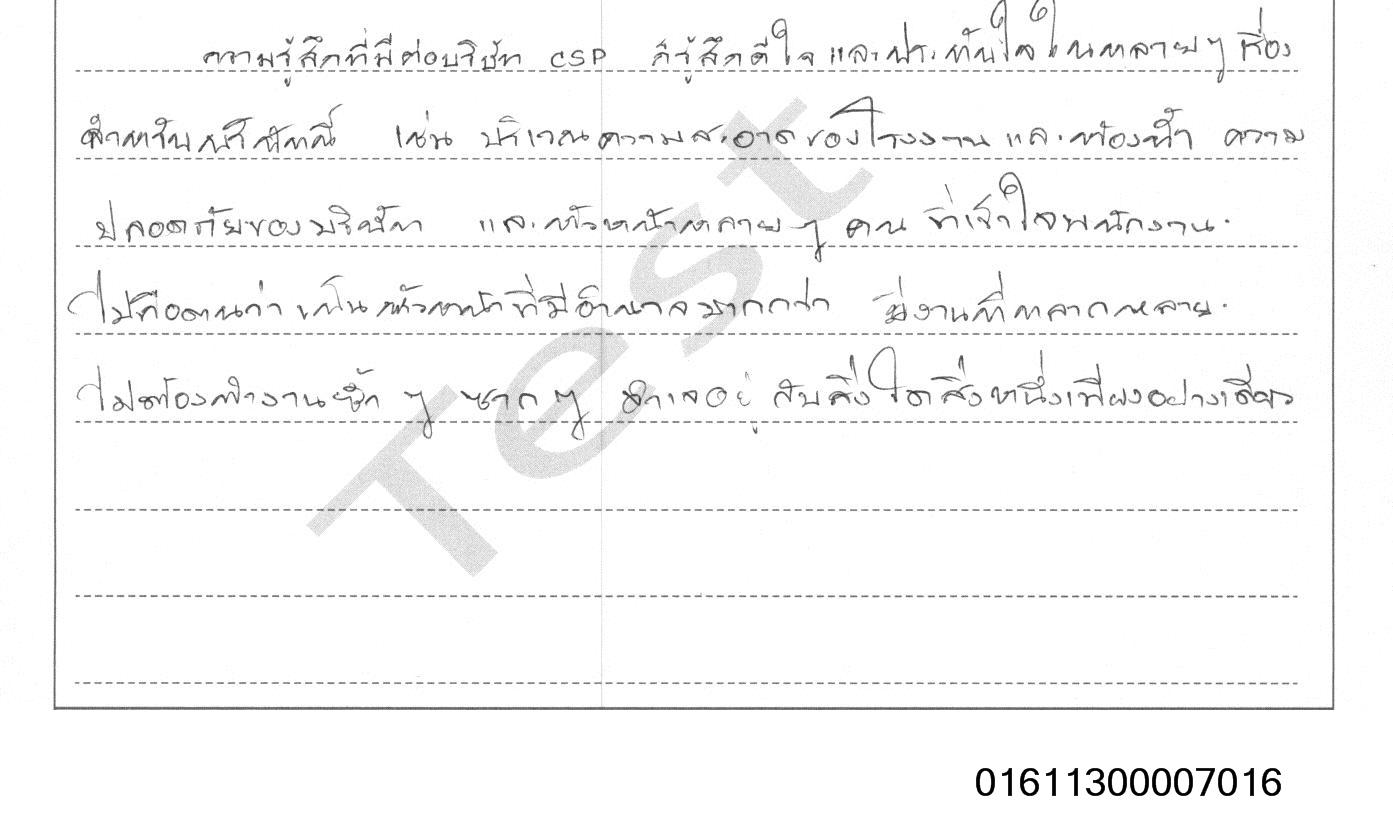 ความรู้สึกที่มีต่อบริษัท CSP ก็รู้สึกดีใจ และประทับใจในหลายๆ เรื่อง
สำหรับบริษัทนี้ เช่น บริเวณความสะอาดของโรงงานและห้องน้ำ ความ
ปลอดภัยของบริษัท และหัวหน้าหลายๆ คน ที่เข้าใจพนักงาน
ไม่ถือตนว่าเป็นหัวหน้าที่มีอำนาจมากกว่า มีงานที่หลากหลาย
ไม่ต้องทำงานซ้ำ ๆ ซาก ๆ จำเจอยู่ กับสิ่งใดสิ่งหนึ่งเพียงอย่างเดียว
Test
01611300007016